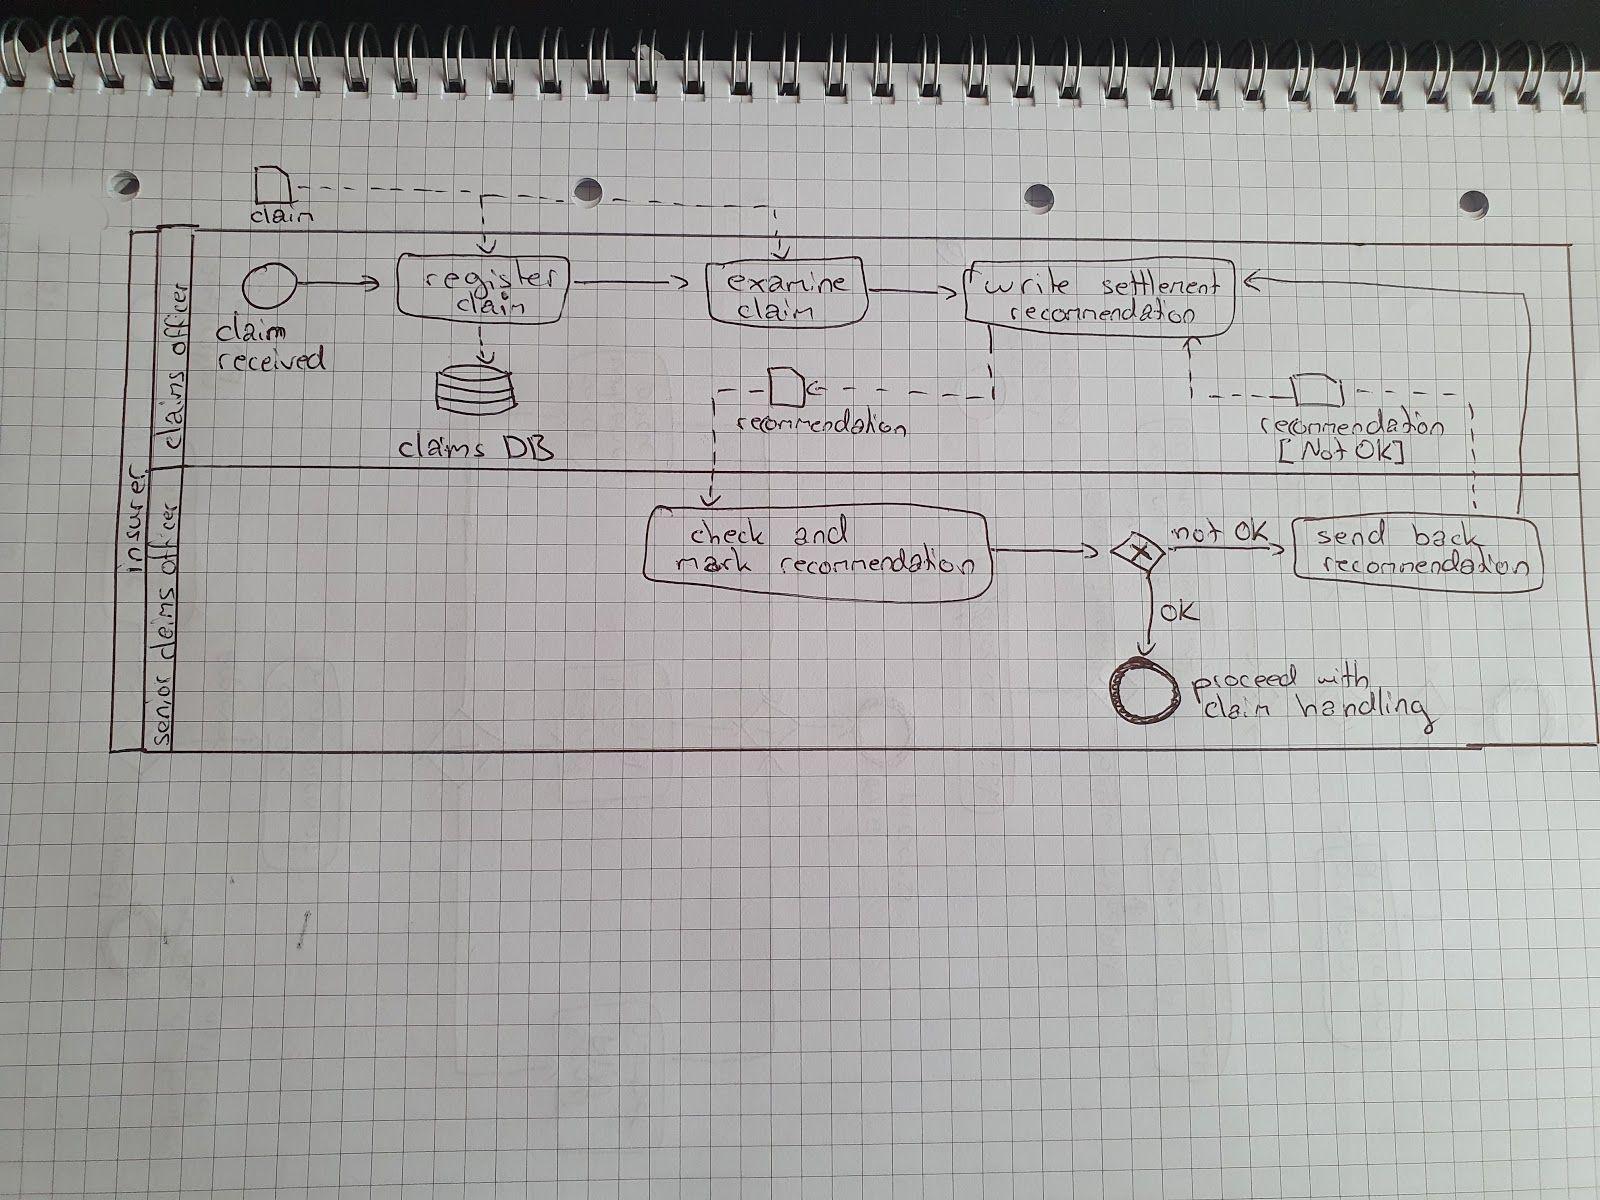 claim
insurer
claims officer
claim
received
register
claim
examine
claim
write settlement
recommendation
claims DB
recommendation
recommendation
[Not OK]
senior claims officer
check and
mark recommendation
not OK
send back
recommendation
OK
proceed with
claim handling